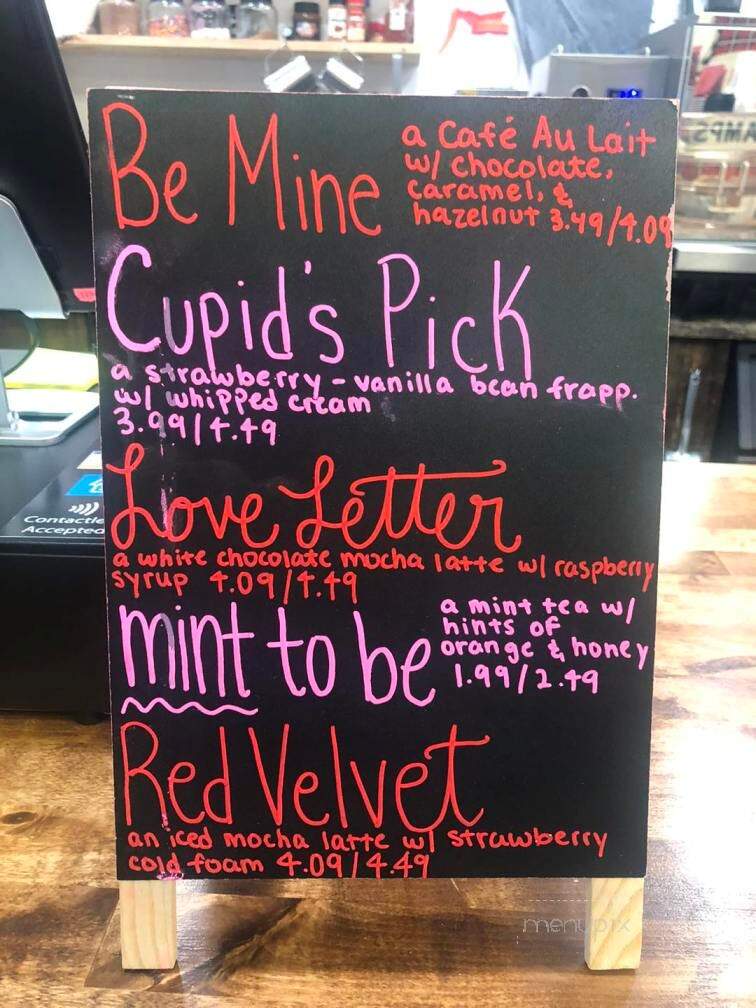 Be Mine
a Café Au Lait
w/ chocolate,
caramel, &
hazelnut 3.49/4.09
Cupid's Pick
a strawberry-vanilla bean frapp.
w/ whipped cream
3.99/4.49
Love Letter
a white chocolate mocha latte w/ raspberry
syrup 4.09/4.49
mint to be
a mint tea w/
hints of
orange & honey
1.99/2.49
Red Velvet
an iced mocha latte w/ strawberry
cold foam 4.09/4.49
Contactle
Accepted
menupix